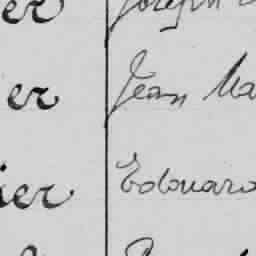 er Joseph
er Jean Ma
ier Edouard